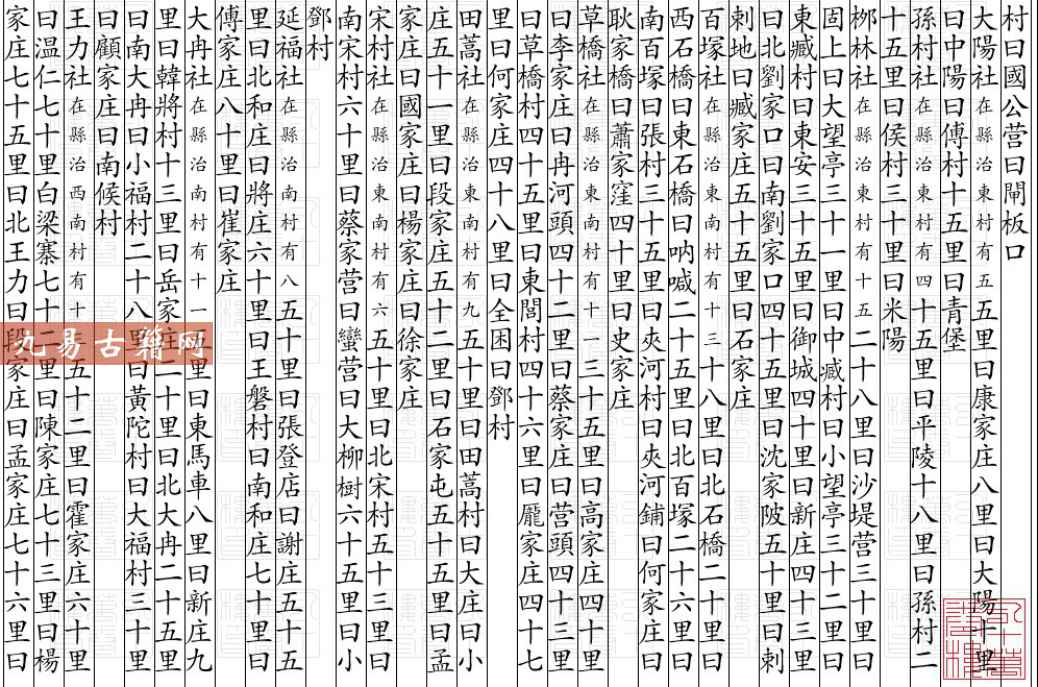 村曰國公营曰閘板口
大陽社在縣治東村有五五里曰康家庄八里曰大陽十里
曰中陽曰傅村十五里曰青堡
孫村社在縣治東村有四十五里曰平陵十八里曰孫村二
十五里曰侯村三十里曰米陽
栁林社在縣治東村有十五二十八里曰沙堤营三十里曰
固上曰大望亭三十一里曰中臧村曰小望亭三十二里曰
東臧村曰東安三十五里曰御城四十里曰新庄四十三里
曰北劉家口曰南劉家口四十五里曰沈家陂五十里曰刺
刺地曰臧家庄五十五里曰石家庄
百塚社在縣治東南村有十三十八里曰北石橋二十里曰
西石橋曰東石橋曰吶喊二十五里曰北百塚二十六里曰
南百塚曰張村三十五里曰夾河村曰夾河鋪曰何家庄曰
耿家橋曰蕭家窪四十里曰史家庄
草橋社在縣治東南村有十一三十五里曰高家庄四十里
曰李家庄曰冉河頭四十二里曰蔡家庄曰营頭四十三里
曰草橋村四十五里曰東閻村四十六里曰龎家庄四十七
里曰何家庄四十八里曰全困曰鄧村
田蒿社在縣治東南村有九五十里曰田蒿村曰大庄曰小
庄五十一里曰段家庄五十二里曰石家屯五十五里曰孟
家庄曰國家庄曰楊家庄曰徐家庄
宋村社在縣治東南村有六五十里曰北宋村五十三里曰
南宋村六十里曰蔡家营曰蠻营曰大柳樹六十五里曰小
鄧村
延福社在縣治南村有八五十里曰張登店曰謝庄五十五
里曰北和庄曰將庄六十里曰王磐村曰南和庄七十里曰
傅家庄八十里曰崔家庄
大冉社在縣治南村有十一五里曰東馬車八里曰新庄九
里曰韓將村十三里曰岳家庄二十里曰北大冉二十五里
曰南大冉曰小福村二十八里曰黃陀村曰大福村三十里
曰顧家庄曰南候村
王力社在縣治西南村有十五十二里曰霍家庄六十里
曰温仁七十里白梁寨七十二里曰陳家庄七十三里曰楊
家庄七十五里曰北王力曰段家庄曰孟家庄七十六里曰
九易古籍网